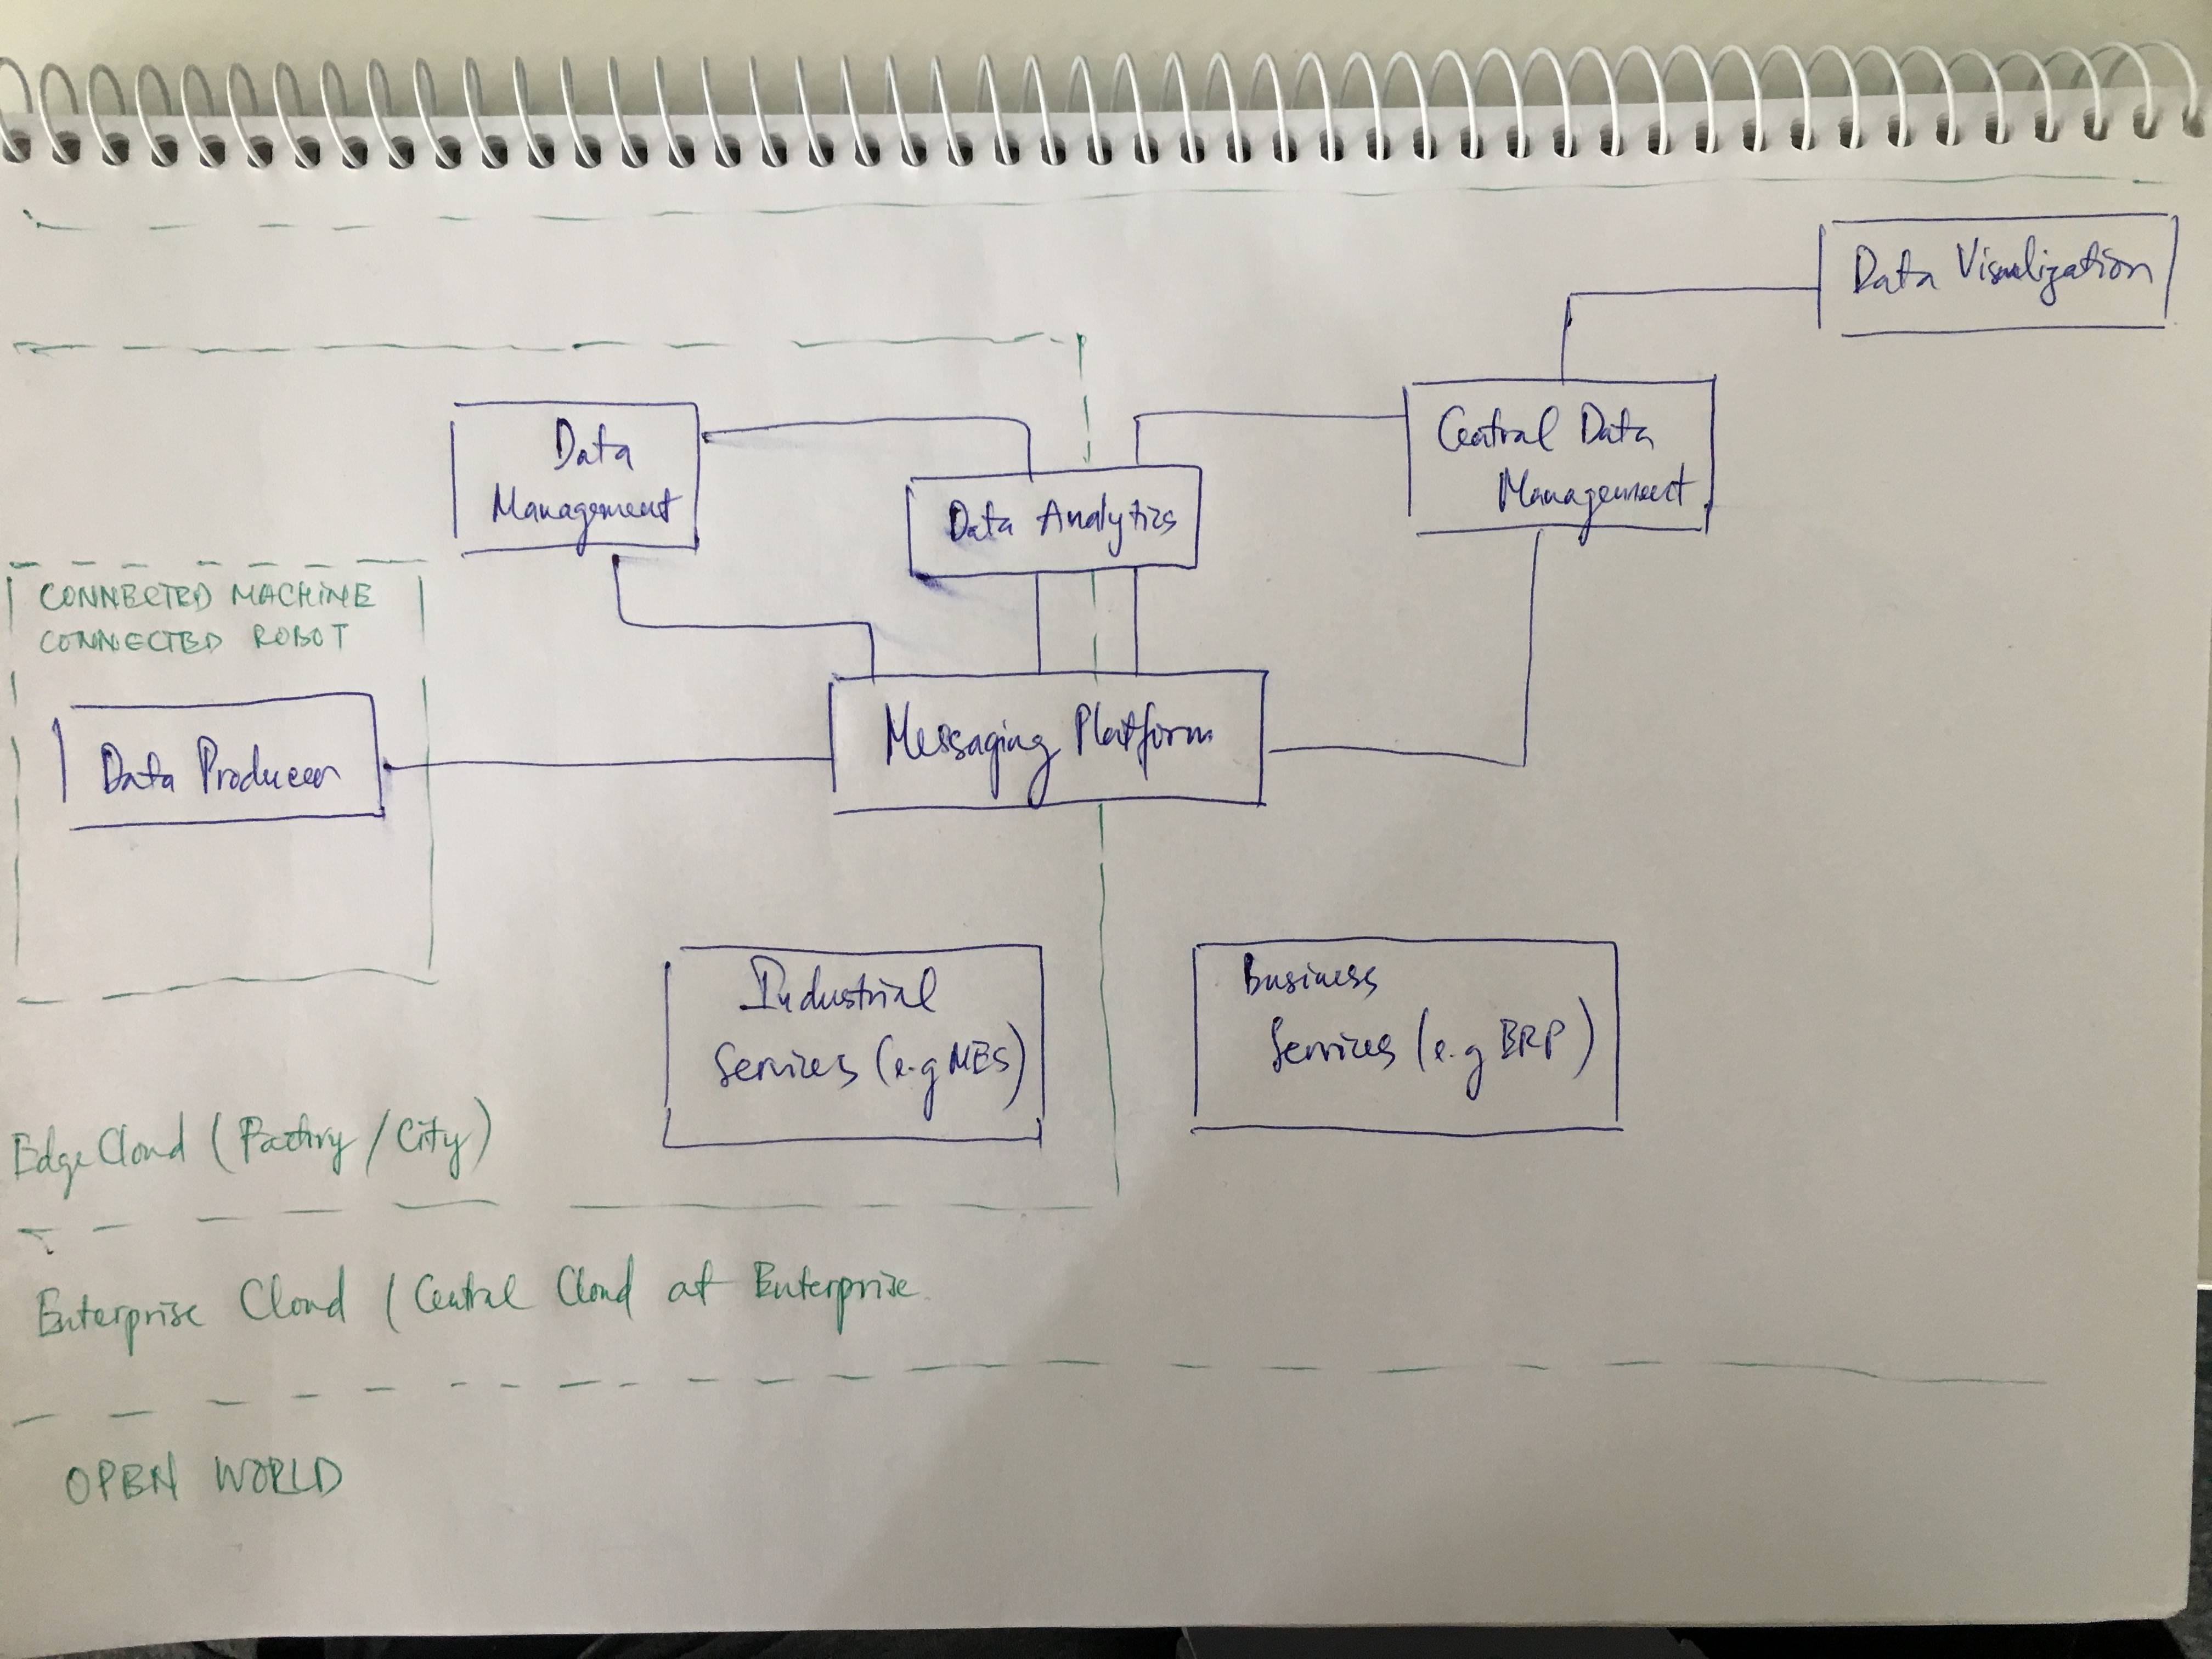 Data Visualization
Data
Management
Central Data
Management
Data Analytics
CONNECTED MACHINE
CONNECTED ROBOT
Data Producer
Messaging Platform
Industrial
Services (e.g MES)
Business
Services (e.g ERP)
Edge Cloud (Factory / City)
Enterprise Cloud ( Central Cloud at Enterprise
OPEN WORLD